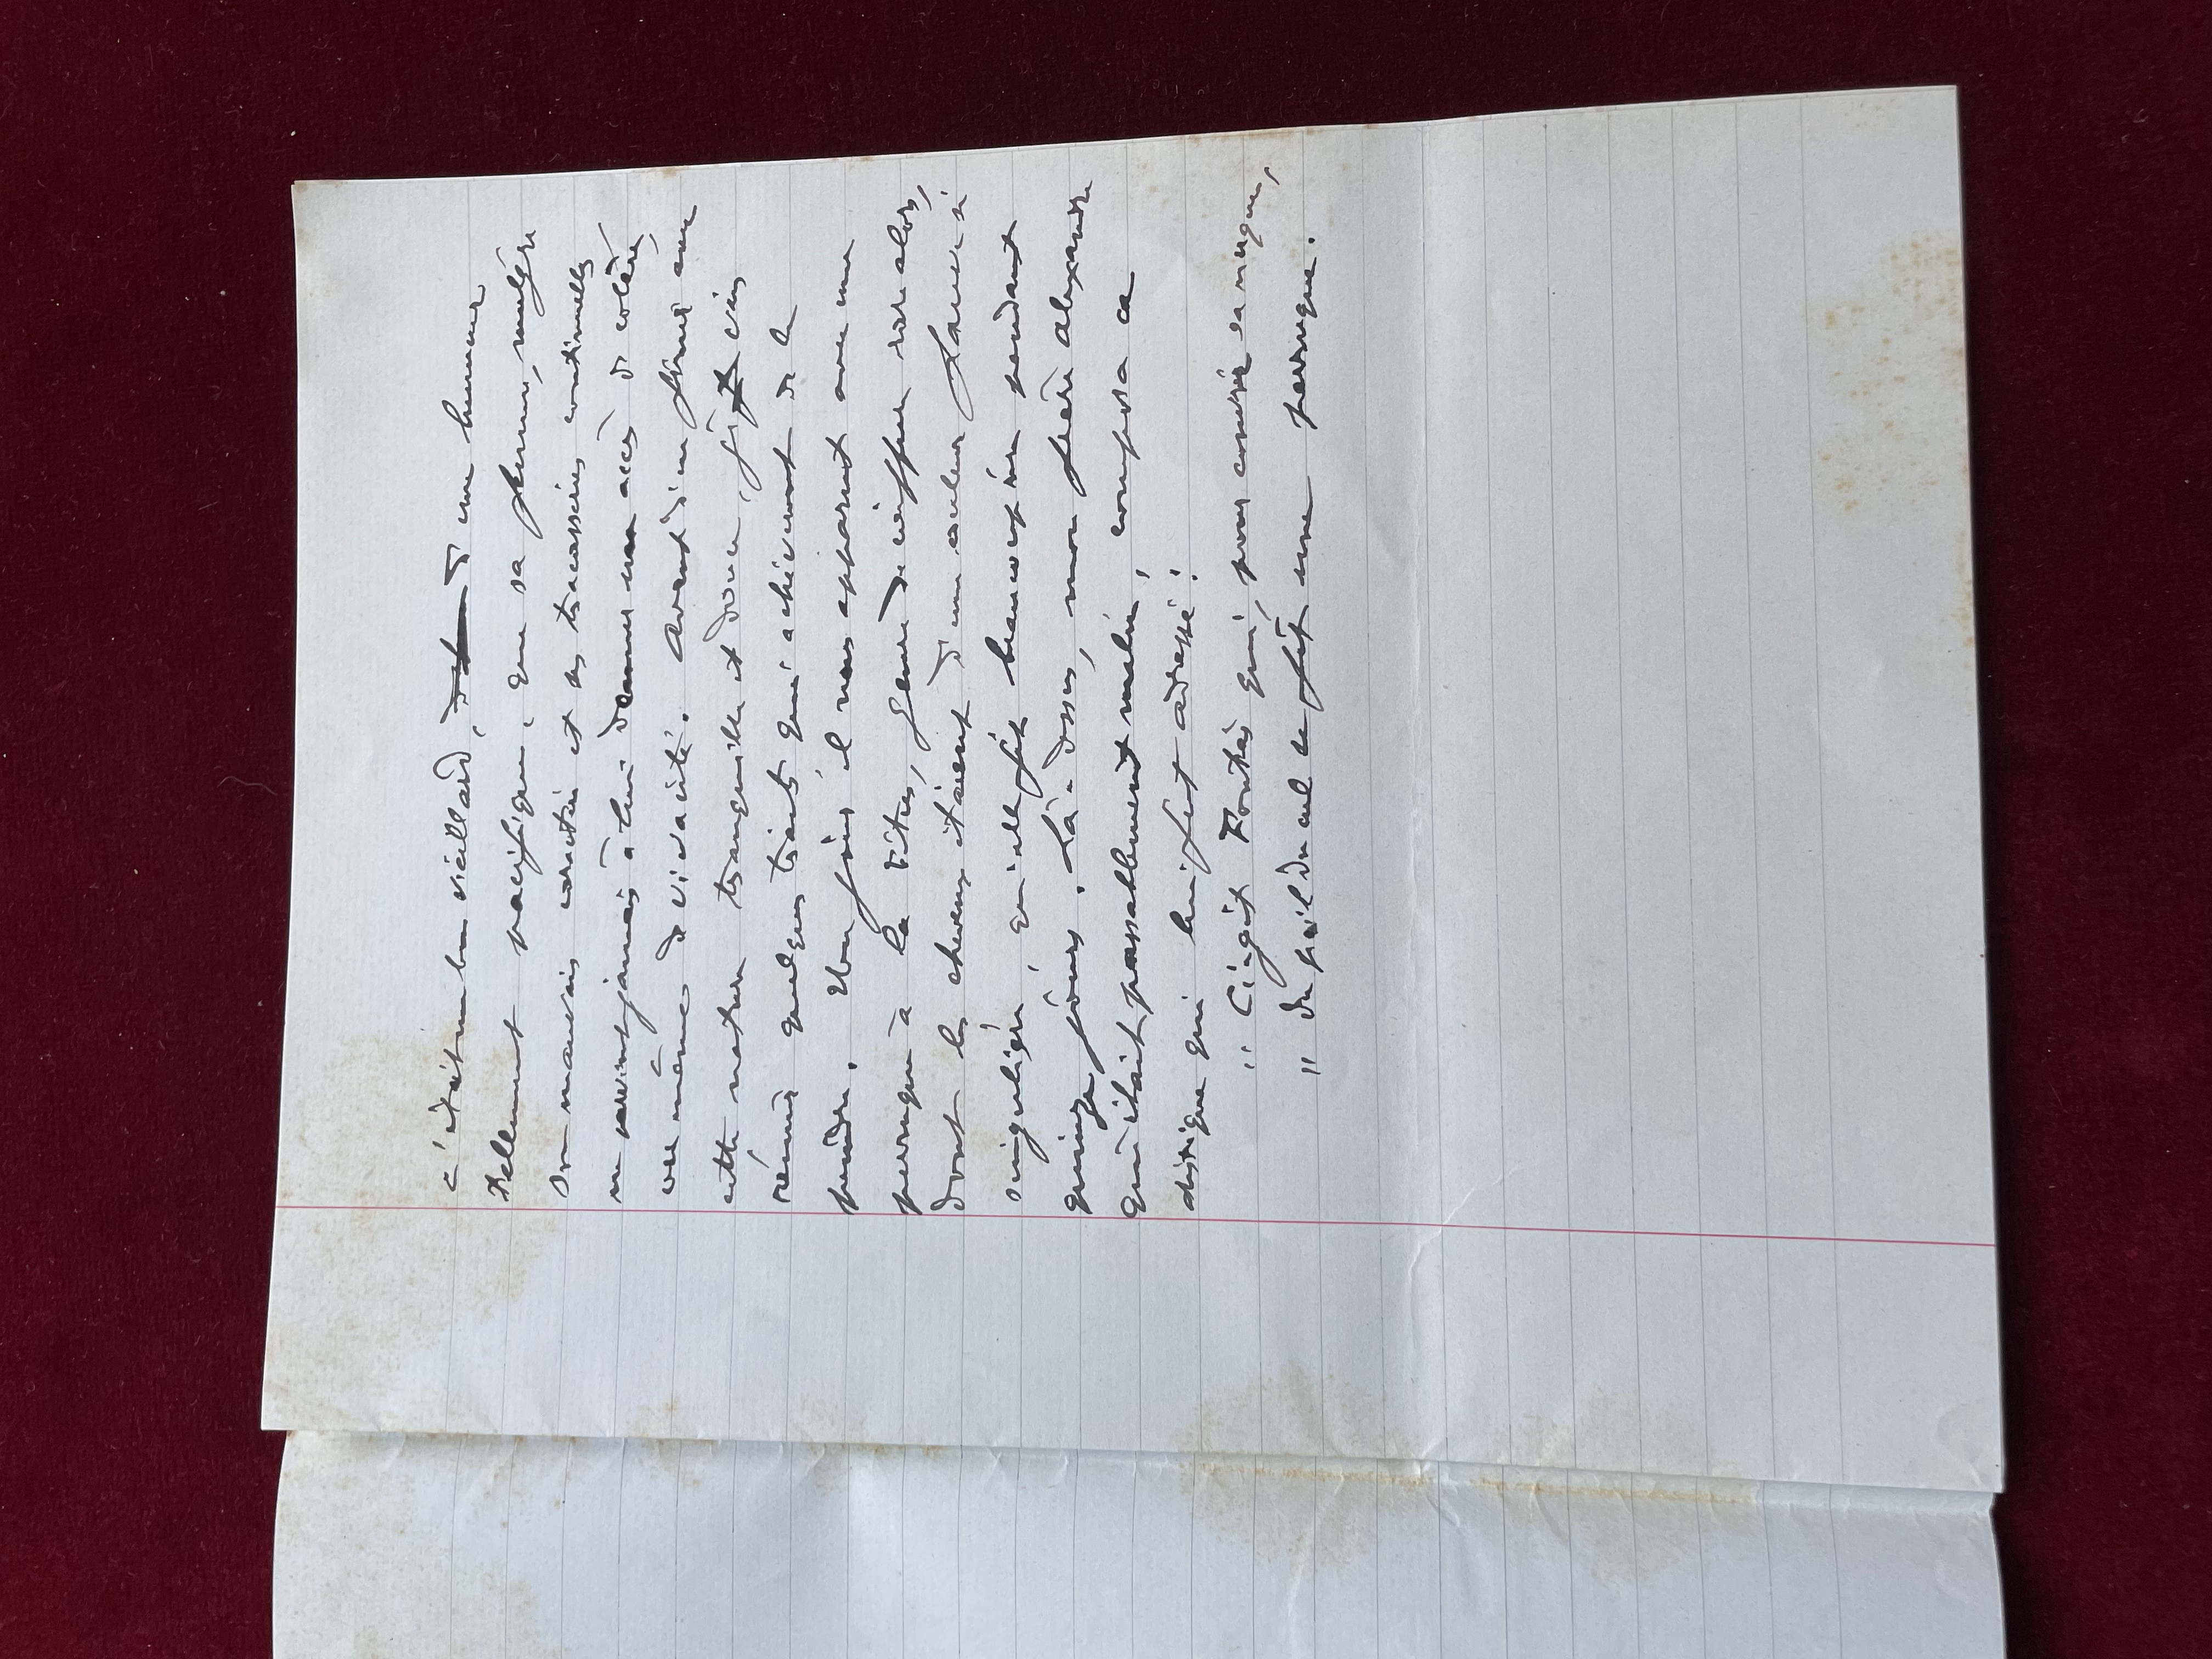 c'était un bon vieillard, d'une humeur
tellement pacifique, que sa femme, malgré
son mauvais caractère et ses tracasseries continuelles
ne parvint jamais à lui donner un accès de colère,
ou même de vivacité. Avant d'en finir avec
cette nature tranquille et douce, j'ai
réuni quelques traits qui achèveront de la
peindre. Une fois il nous apparut avec une
perruque à la Titus, genre de coiffure rare alors,
dont les cheveux étaient d'une couleur fauve si
singulière, qu'elle fit beaucoup rire pendant
quinze jours. Là-dessus, mon frère Alexandre
qui était passablement malin, composa ce
distique qui lui fut adressé:
" Ci-gît qui, pour couvrir sa nuque,
" Du poil du cul se fit une perruque.